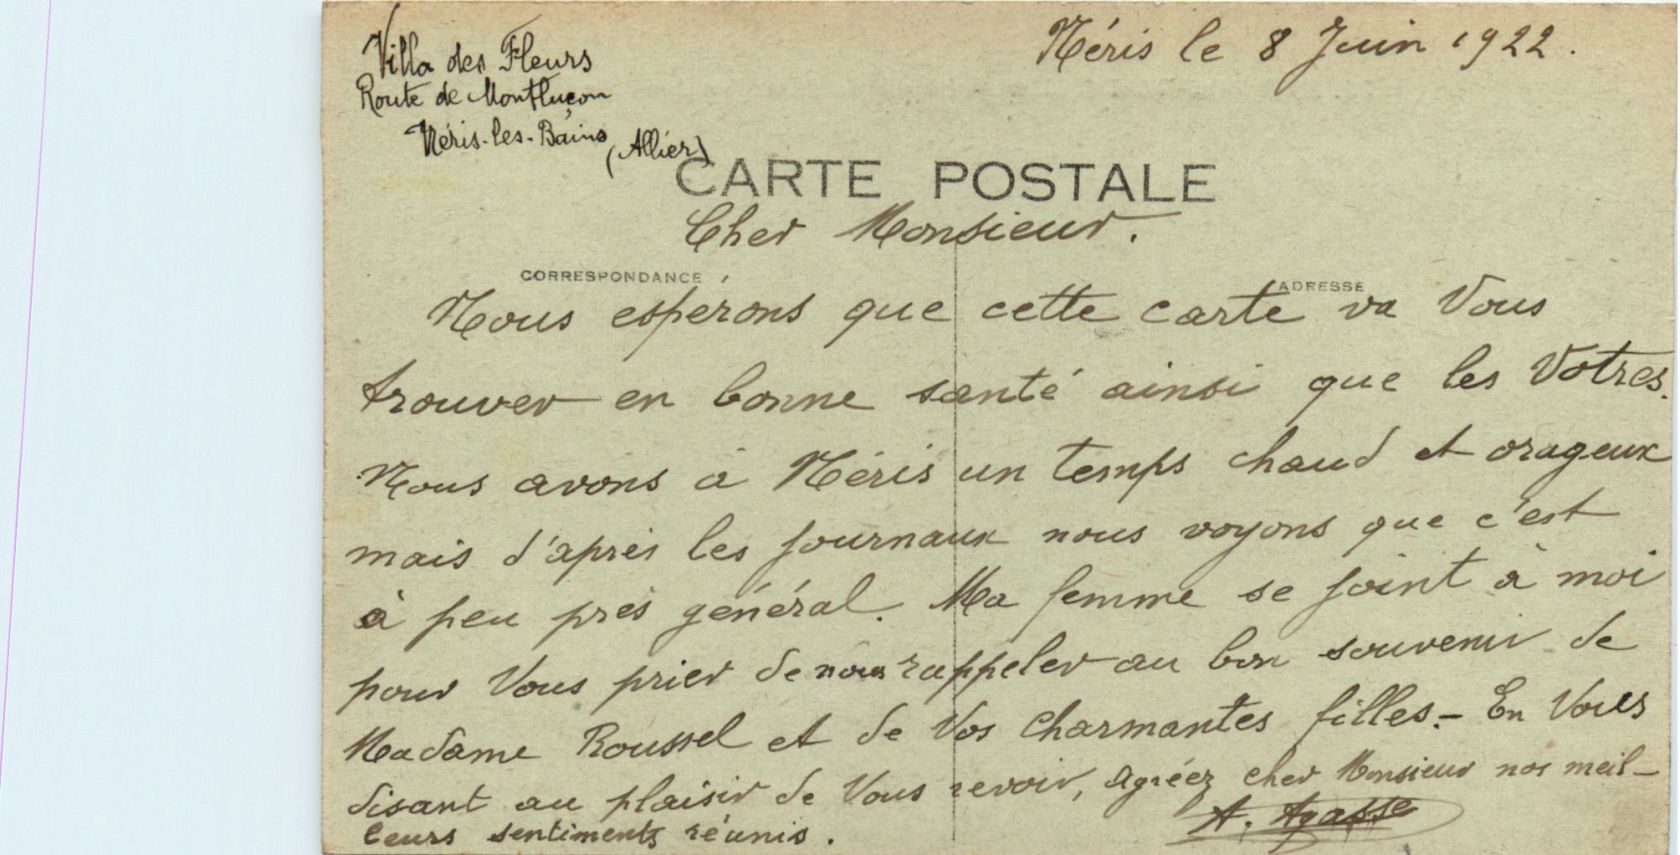 Villa des Fleurs
Route de Montluçon
Néris-les-Bains
(Allier)
Néris le 8 Juin 1922.
CARTE POSTALE
Cher Monsieur.
CORRESPONDANCE
ADRESSE
Nous espérons que cette carte va Vous
trouver en bonne santé ainsi que les Votres.
Nous avons à Néris un temps chaud et orageux
mais d'après les journaux nous voyons que c'est
à peu près général. Ma femme se joint à moi
pour Vous prier de nous rappeler au bon souvenir de
Madame Roussel et de Vos charmantes filles.- En Vous
disant au plaisir de Vous revoir, agréez cher Monsieur nos meil-
leurs sentiments réunis.
A. Agasse